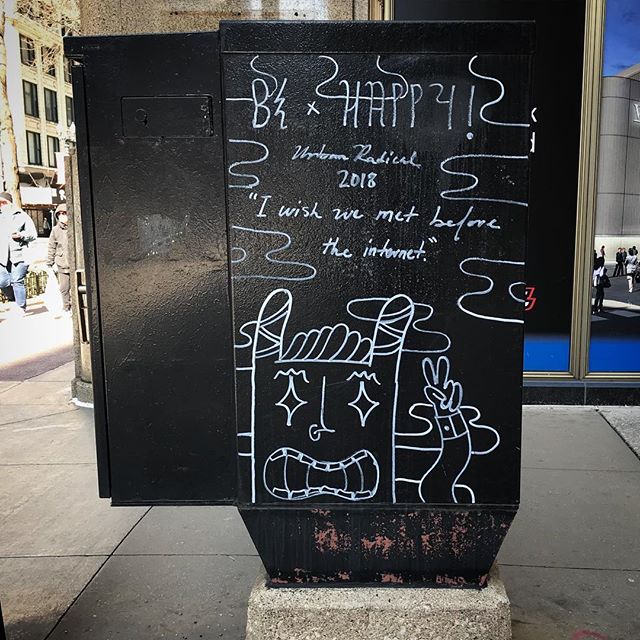 B⚡ x HAPPY!
Urban Radical
2018
"I wish we met before
the internet."